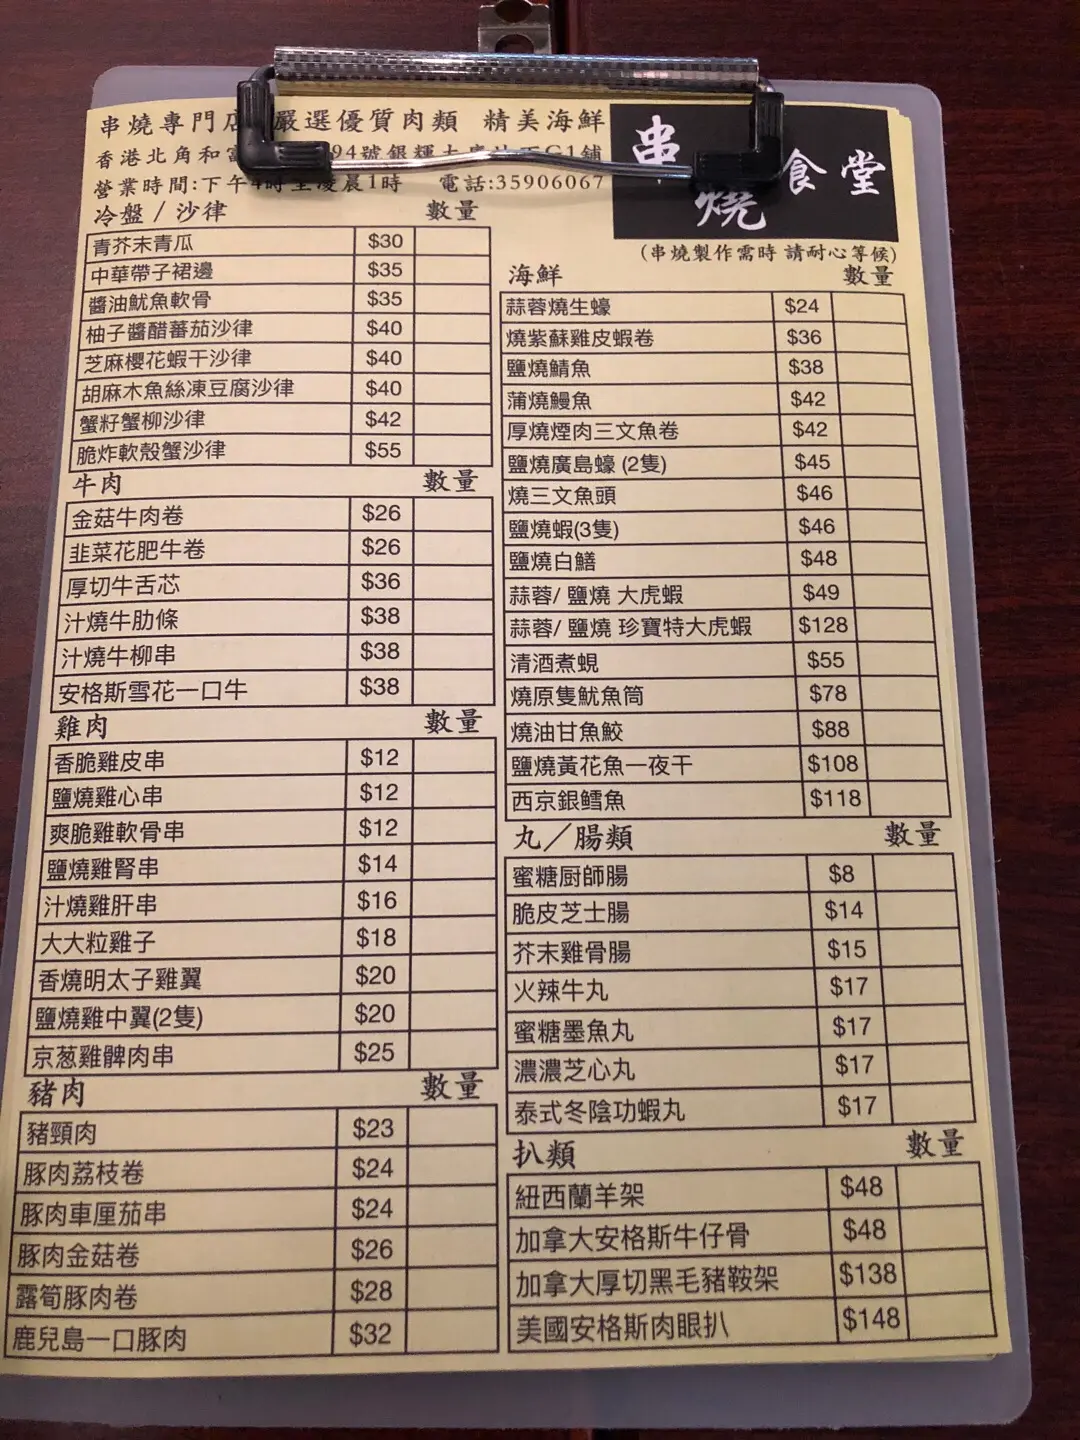 串燒專門店 嚴選優質肉類 精美海鮮
香港北角和富 94號銀輝大廈地下G1舖
營業時間:下午4時至凌晨1時 電話:35906067
串燒食堂
(串燒製作需時 請耐心等候)
冷盤/沙律 數量
青芥末青瓜 $30
中華帶子裙邊 $35
醬油魷魚軟骨 $35
柚子醬醋蕃茄沙律 $40
芝麻櫻花蝦干沙律 $40
胡麻木魚絲凍豆腐沙律 $40
蟹籽蟹柳沙律 $42
脆炸軟殼蟹沙律 $55
牛肉 數量
金菇牛肉卷 $26
韭菜花肥牛卷 $26
厚切牛舌芯 $36
汁燒牛肋條 $38
汁燒牛柳串 $38
安格斯雪花一口牛 $38
雞肉 數量
香脆雞皮串 $12
鹽燒雞心串 $12
爽脆雞軟骨串 $12
鹽燒雞腎串 $14
汁燒雞肝串 $16
大大粒雞子 $18
香燒明太子雞翼 $20
鹽燒雞中翼(2隻) $20
京葱雞髀肉串 $25
豬肉 數量
豬頸肉 $23
豚肉荔枝卷 $24
豚肉車厘茄串 $24
豚肉金菇卷 $26
露筍豚肉卷 $28
鹿兒島一口豚肉 $32
海鮮 數量
蒜蓉燒生蠔 $24
燒紫蘇雞皮蝦卷 $36
鹽燒鯖魚 $38
蒲燒鰻魚 $42
厚燒煙肉三文魚卷 $42
鹽燒廣島蠔 (2隻) $45
燒三文魚頭 $46
鹽燒蝦(3隻) $46
鹽燒白鱔 $48
蒜蓉/ 鹽燒 大虎蝦 $49
蒜蓉/ 鹽燒 珍寶特大虎蝦 $128
清酒煮蜆 $55
燒原隻魷魚筒 $78
燒油甘魚鮫 $88
鹽燒黃花魚一夜干 $108
西京銀鱈魚 $118
丸/腸類 數量
蜜糖厨師腸 $8
脆皮芝士腸 $14
芥末雞骨腸 $15
火辣牛丸 $17
蜜糖墨魚丸 $17
濃濃芝心丸 $17
泰式冬陰功蝦丸 $17
扒類 數量
紐西蘭羊架 $48
加拿大安格斯牛仔骨 $48
加拿大厚切黑毛豬鞍架 $138
美國安格斯肉眼扒 $148